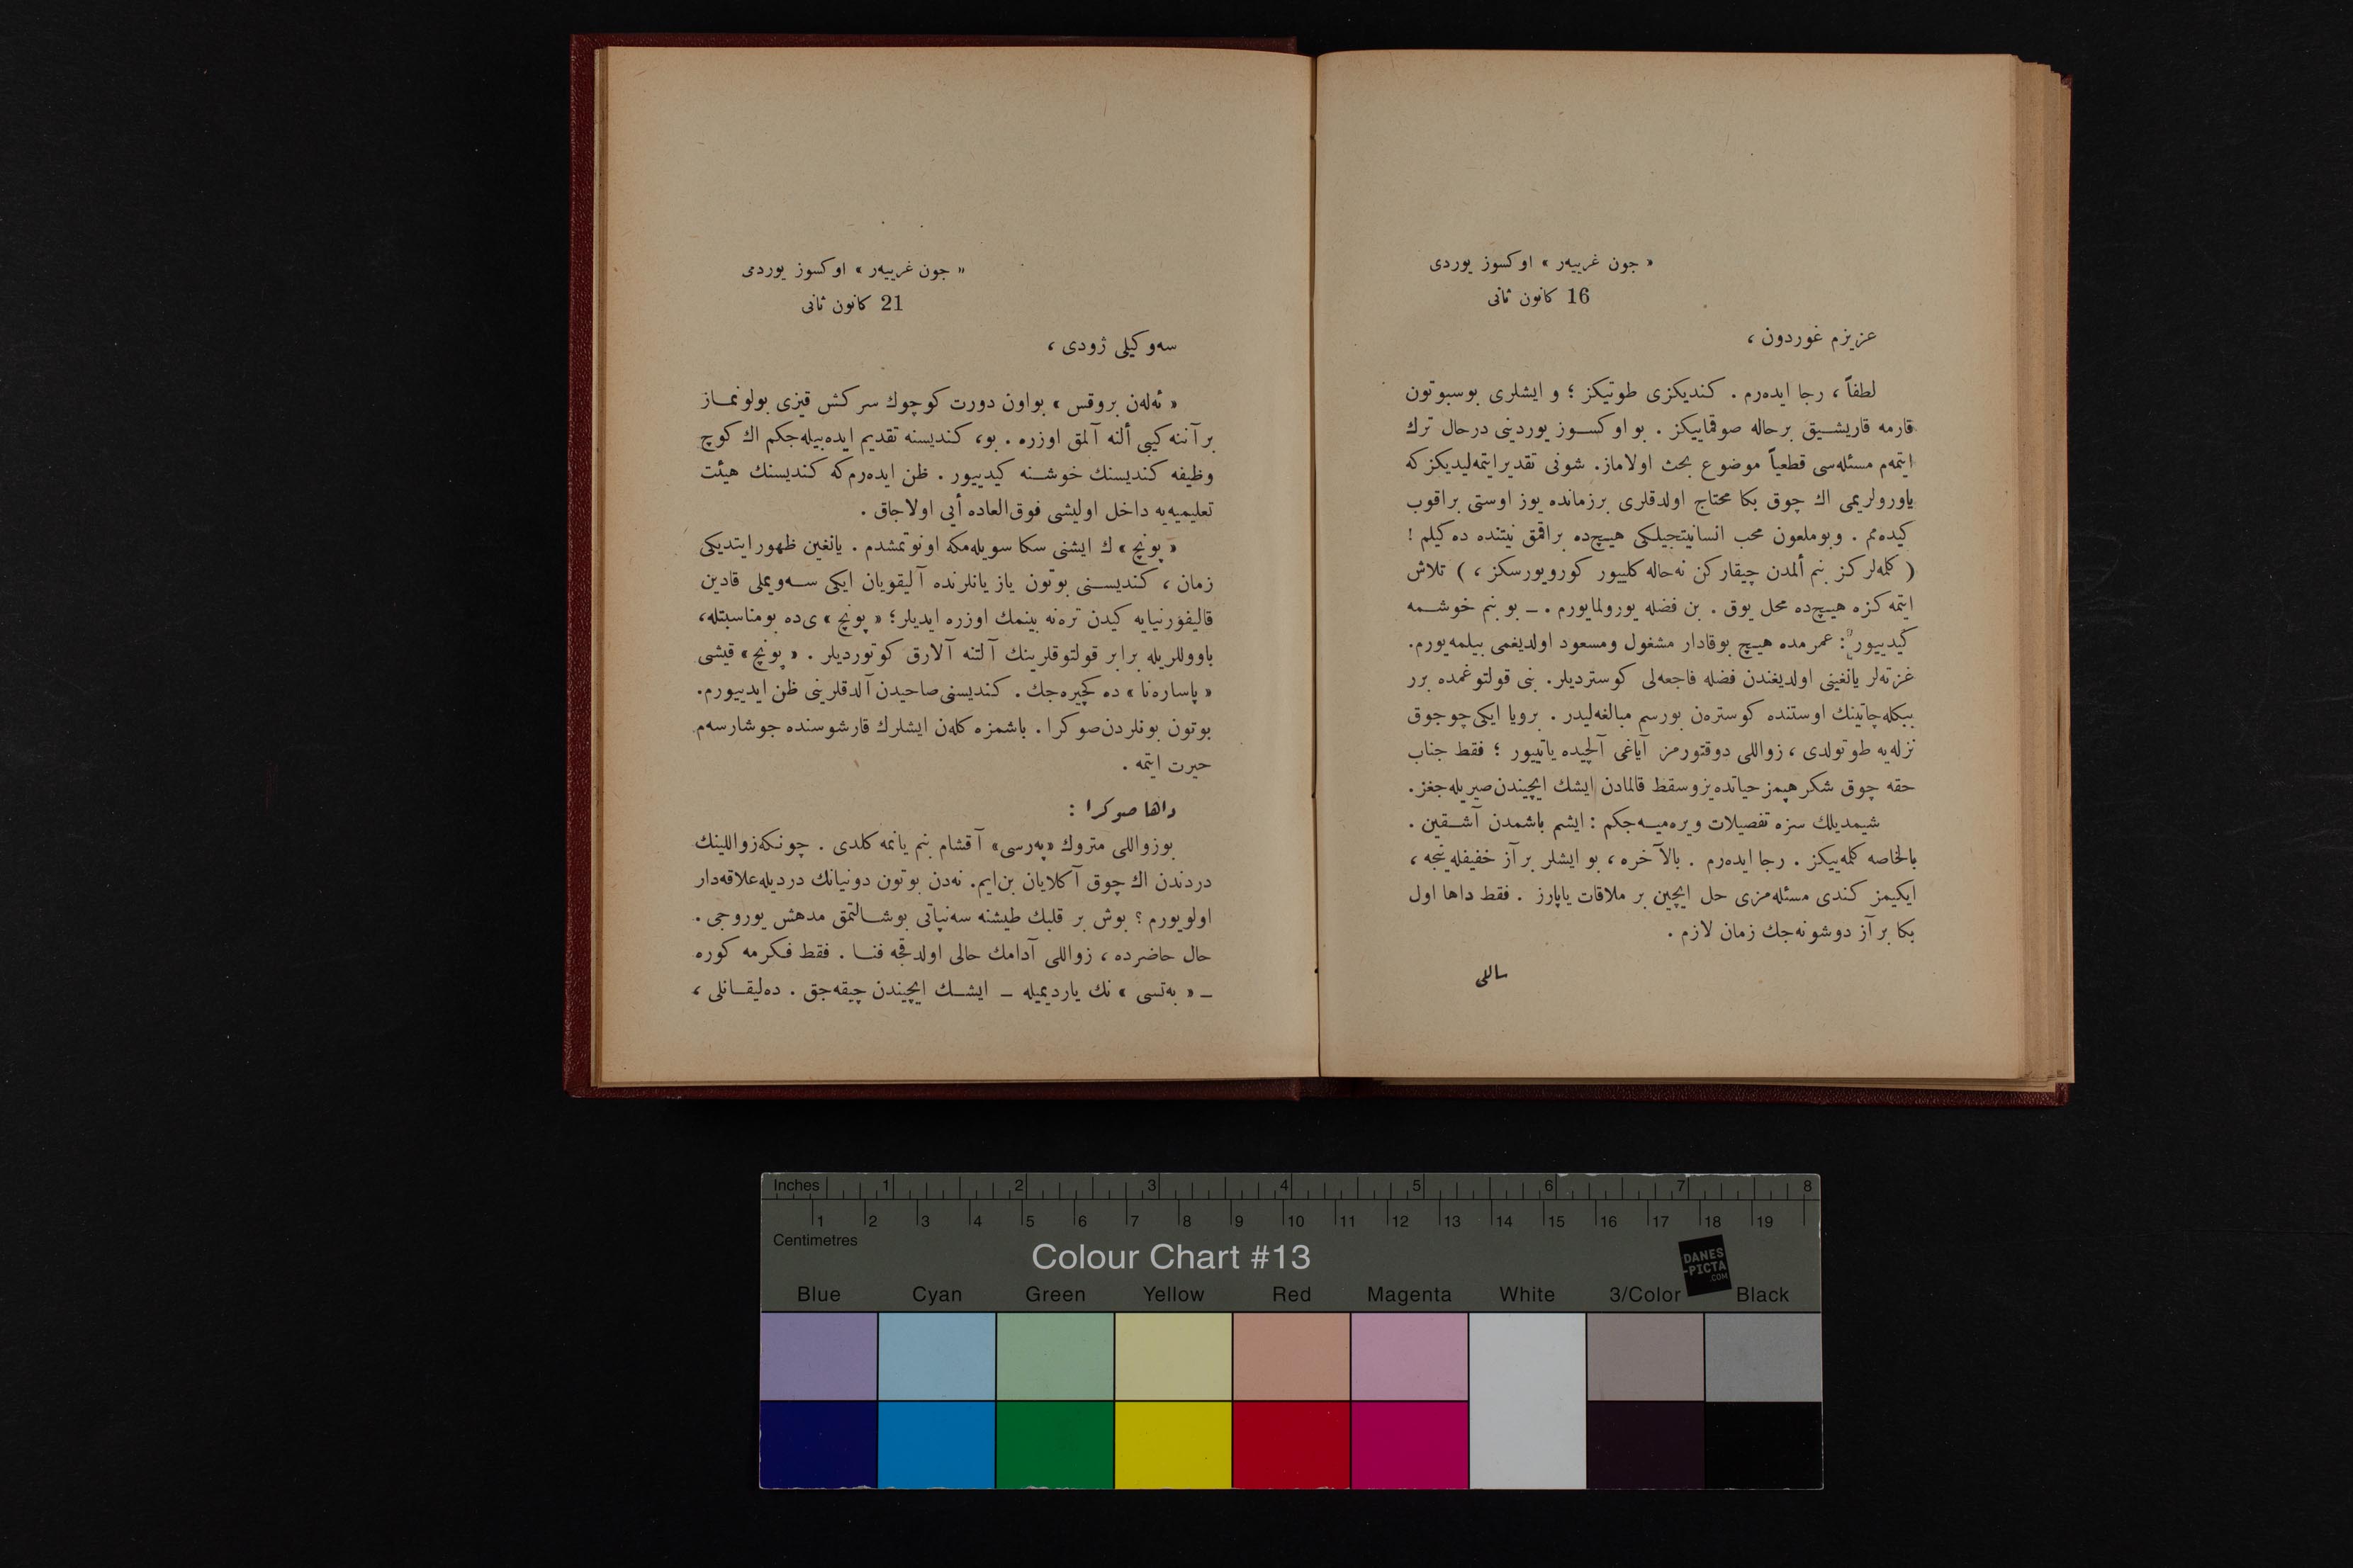 « جون غریيه‌ر » اوكسوز یوردی
16 كانون ثانی
عزیزم غوردون ،
لطفاً ، رجا ایده‌رم . كندیكزی طوتیكز ؛ و ایشلری بوسبوتون
قارمه قاریشیق برحاله صوقمایيكز . بو اوكسوز یوردینی درحال ترك
ایتمه‌م مسئله‌سی قطعیاً موضوع بحث اولاماز. شونی تقدیر ایتمه‌لیدیكز كه
یاورولریمی اك چوق بكا محتاج اولدقلری برزمانده یوز اوستی براقوب
كیده‌مم . وبوملعون محب انسانیتجیلكی هیچ‌ده براقمق نیتنده ده‌كیلم !
( كلمه‌لركز بنم ألمدن چیقاركن نه‌حاله كلییور كورویورسكز ، ) تلاش
ایتمه‌كزه هیچ‌ده محل یوق . بن فضله یورولمایورم . ـ بو بنم خوشمه
كیدییور : عمرمده هیچ بوقادار مشغول ومسعود اولدیغمی بیلمه‌یورم.
غزته‌لر یانغینی اولدیغندن فضله فاجعه‌لی كوستردیلر. بنی قولتوغمده برر
ببكله‌چاتینك اوستنده كوستره‌ن بورسم مبالغه‌لیدر . برویا ایكی چوجوق
نزله‌یه طوتولدی ، زواللی دوقتورمز آیاغی آلچیده یاتییور ؛ فقط جناب
حقه چوق شكر هپمز حیاتده‌یز وسقط قالمادن ایشك ایچیندن صیریله‌جغز.
شیمدیلك سزه تفصیلات ویره‌میه‌جكم : ایشم باشمدن آشقین .
بالخاصه كلمه‌ییكز . رجا ایده‌رم . بالآخره ، بو ایشلر بر آز خفیفله‌ینجه ،
ایكیمز كندی مسئله‌مزی حل ایچین بر ملاقات یاپارز . فقط داها اول
بكا بر آز دوشونه‌جك زمان لازم .
ساللی
« جون غریيه‌ر » اوكسوز یوردمی
21 كانون ثانی
سه‌وكیلی ژودی ،
« ئه‌له‌ن بروقس » بواون دورت كوچوك سركش قیزی بولونماز
برآننه‌كیبی ألنه آلمق اوزره . بو، كندیسنه تقدیم ایده‌بیله‌جكم اك كوچ
وظیفه كندیسنك خوشنه كیدییور . ظن ایده‌رم كه كندیسنك هیئت
تعلیمیه‌یه داخل اولیشی فوق‌العاده أیی اولاجاق .
« پونچ » ك ایشنی سكا سویله‌مكه اونوتمشدم . یانغین ظهور ایتدیكی
زمان ، كندیسنی بوتون یاز یانلرنده آلیقویان ایكی سه‌ویملی قادین
قالیفورنیایه كیدن تره‌نه بینمك اوزره ایدیلر؛ « پونچ » ی‌ده بومناسبتله،
باووللریله برابر قولتوقلرینك آلتنه آلارق كوتوردیلر . « پونچ » قیشی
« پاساره‌نا » ده كچیره‌جك . كندیسنی صاحیدن آلدقلرینی ظن ایدییورم.
بوتون بونلردن صوكرا . باشمزه كله‌ن ایشلرك قارشوسنده جوشارسه‌م
حیرت ایتمه .
داها صوكرا :
بوزواللی متروك «په‌رسی» آقشام بنم یانمه كلدی . چونكه‌زواللینك
دردندن اك چوق آكلایان بن‌ایم. نه‌دن بوتون دونیانك دردیله علاقه‌دار
اولویورم ؟ بوش بر قلبك طیشنه سه‌نپاتی بوشالتمق مدهش یوروجی .
حال حاضرده ، زواللی آدامك حالی اولدقجه فنا . فقط فكرمه كوره
ـ « به‌تسی » نك یاردیمیله ـ ایشك ایچیندن چیقه‌جق . ده‌لیقانلی ،
Inches 1 2 3 4 5 6 7 8
1 2 3 4 5 6 7 8 9 10 11 12 13 14 15 16 17 18 19
Centimetres
Colour Chart #13
DANES
-PICTA
.COM
Blue Cyan Green Yellow Red Magenta White 3/Color Black